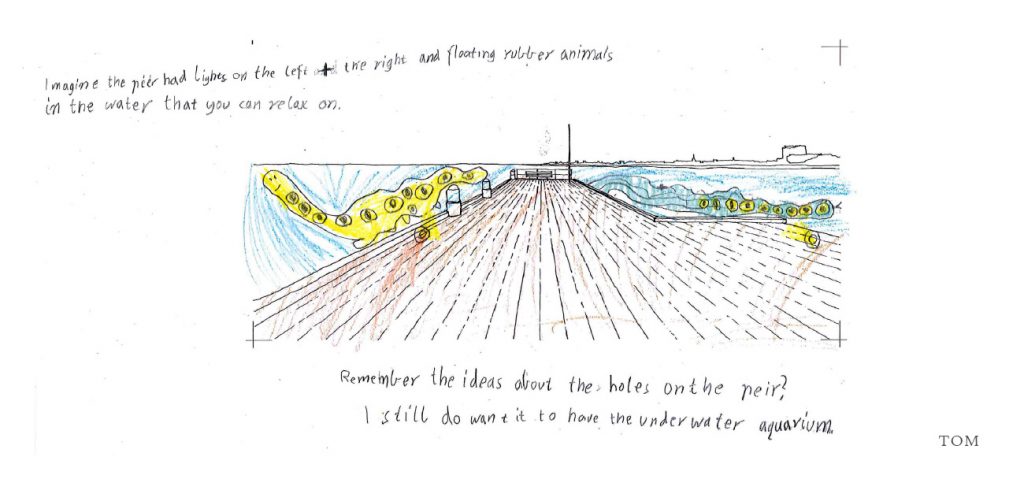 Imagine the piér had Lights on the left and the right and floating rubber animals
in the water that you can relax on.
Remember the ideas about the holes on the peir?
I still do want it to have the underwater aquarium.
TOM